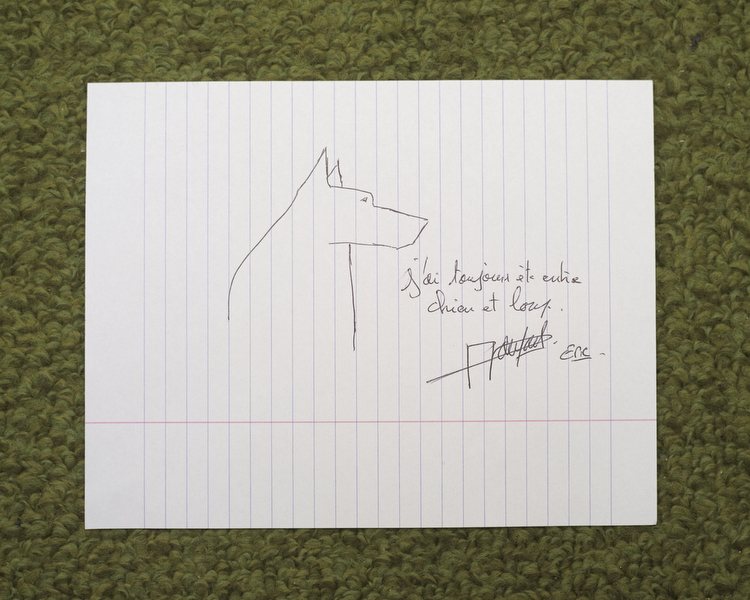 j'ai toujours été entre
chien et loup.
Eric.